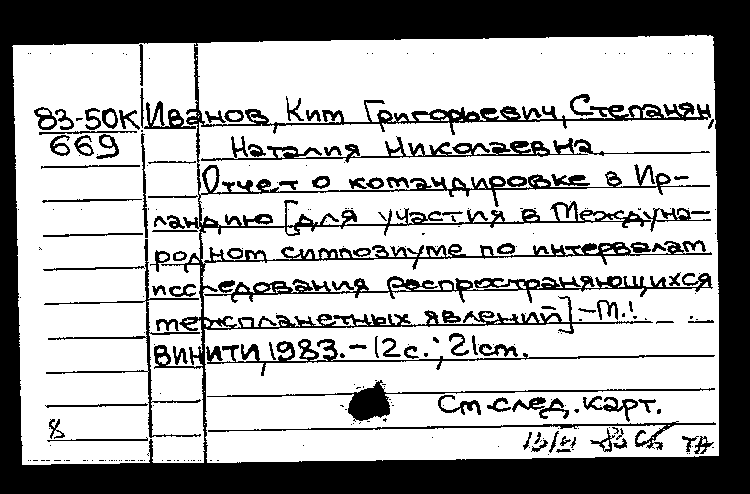 83-50К Иванов, Ким Григорьевич, Степанян,
669 Наталия Николаевна.
Отчет о командировке в Ир-
ландию [для участия в Междуна-
родном симпозиуме по интервалам
исследования распространяющихся
межпланетных явлений] -М.:
ВИНИТИ, 1983. - 12 с.; 21 см.
См. след. карт.
8